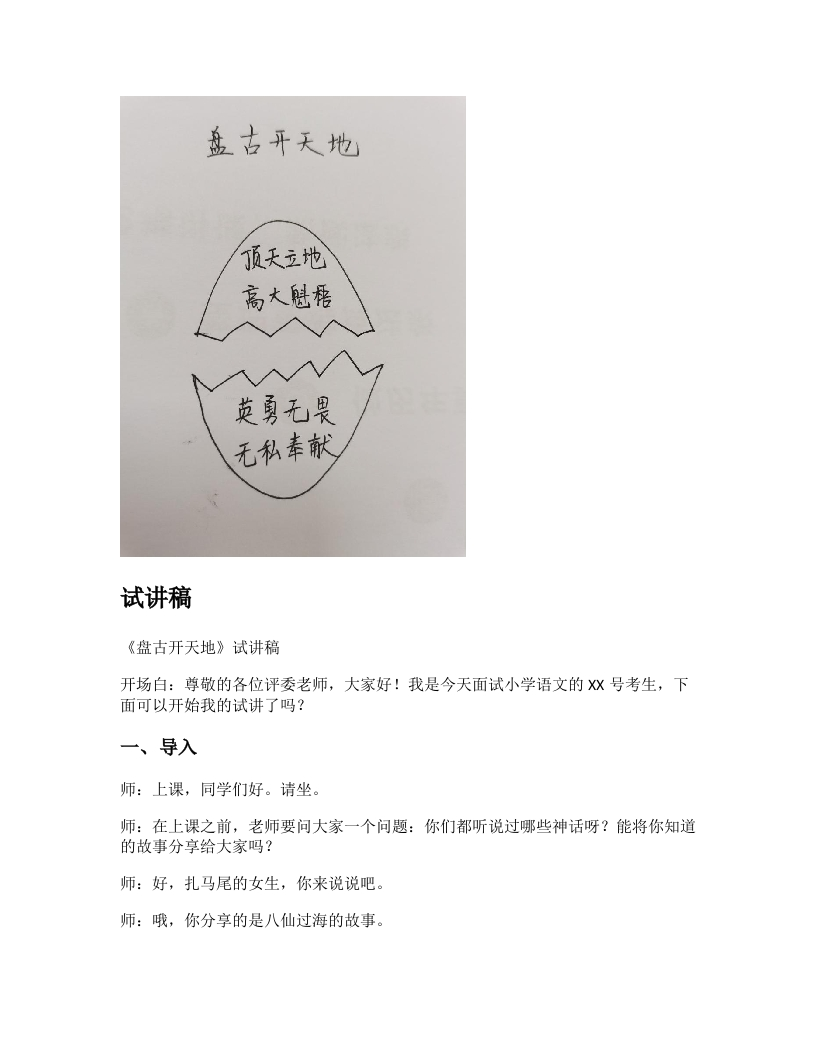 盘古开天地
顶天立地
高大魁梧
英勇无畏
无私奉献
试讲稿
《盘古开天地》试讲稿
开场白：尊敬的各位评委老师，大家好！我是今天面试小学语文的 XX 号考生，下
面可以开始我的试讲了吗？
一、导入
师：上课，同学们好。请坐。
师：在上课之前，老师要问大家一个问题：你们都听说过哪些神话呀？能将你知道
的故事分享给大家吗？
师：好，扎马尾的女生，你来说说吧。
师：哦，你分享的是八仙过海的故事。